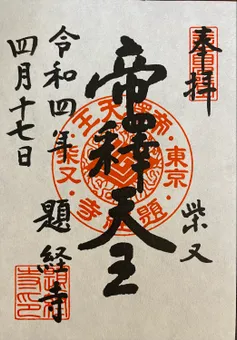 奉拝
柴又
帝釈天王
令和四年
題経寺
四月十七日
帝釋天王・東京・題経寺・柴又・